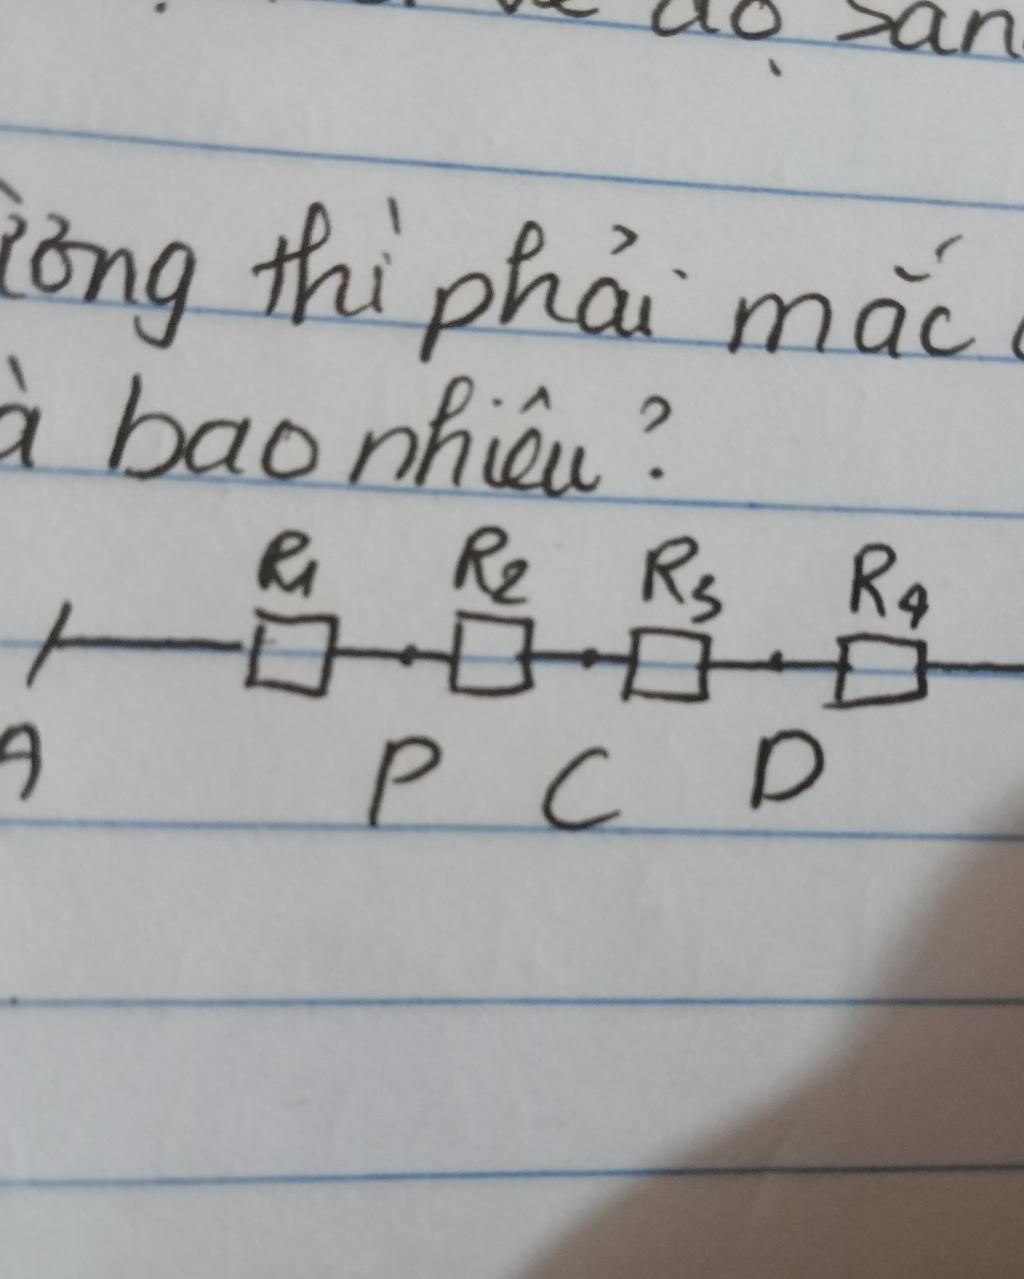 độ sán
thì phải mắc
bao nhiêu?
R1 R2 R3 R4
A P C D